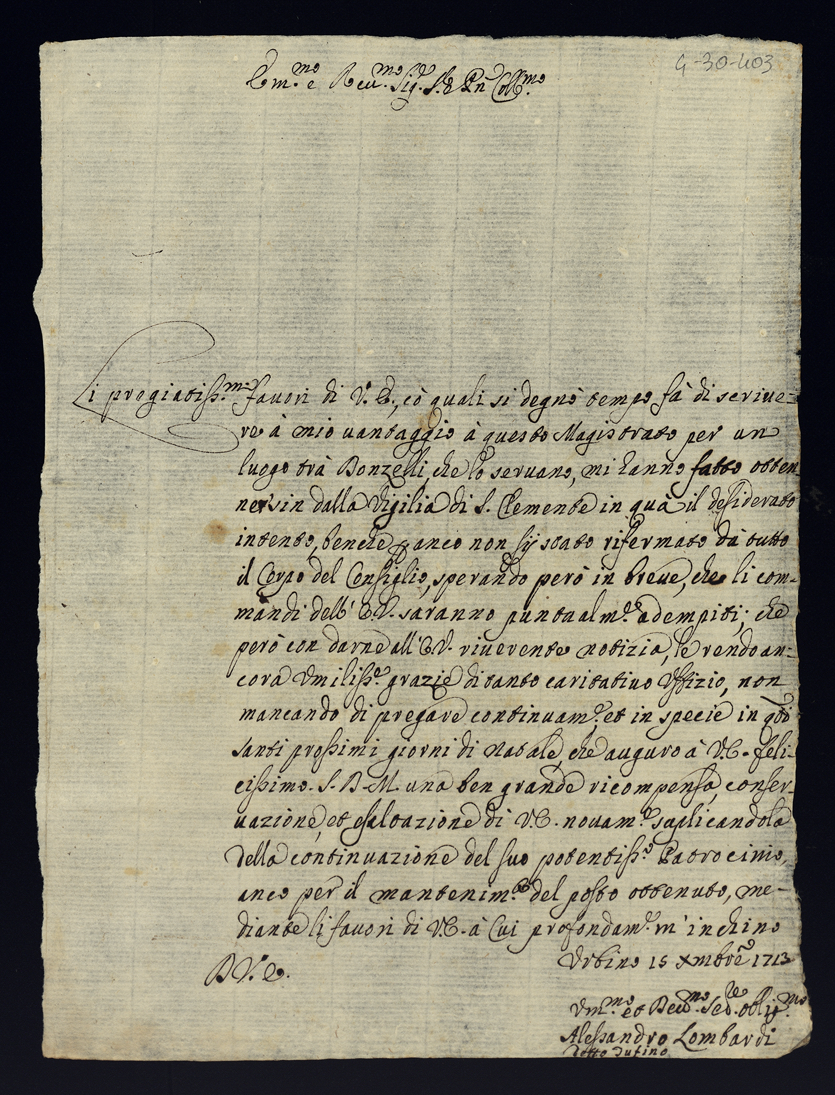 4-30-403
Em.mo e Reu.mo Sig.r S.r e Pn̄ Coll.mo
Li pregiatiss.mi favori di V.E., cō quali si degnò tempo fà di scriue=
re à mio uantaggio à questo Magistrato per un
luogo trà Donzelli, che lo seruano, mi hanno fatto otten
ner sin dalla Vigilia di S. Clemente in quà il desiderato
intento, benche anco non sij stato rifermato dà tutto
il Corpo del Consiglio, sperando però in breue, che li com=
mandi dell' E.V. saranno puntualm.e adempiti; che
però con darne all' E.V. riuerente notizia, le rendo an=
cora Vmiliss.e grazie di tanto caritatiuo Vffizio, non
mancando di pregare continuam.e et in specie in q̄sti
santi prossimi giorni di Natale, che auguro à V.E. feli
cissimo. S.D.M. una ben grande ricompensa, conser=
uazione, et esaltazione di V.E. nouam.e suplicandola
della continuazione del suo potentiss.o Patrocinio,
anco per il mantenim.to del posto ottenuto, me=
diante li fauori di V.E. à Cui profondam.e m'inchino
Vrbino 15 Xmbrē 1713
D V.E.
Vm.mo et Deu.mo Ser.re oblig.mo
Alessandro Lombardi
detto